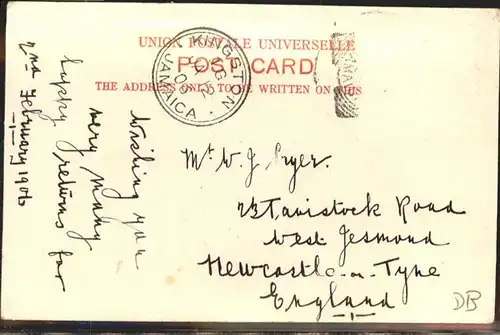 UNION POSTALE UNIVERSELLE
POST CARD
THE ADDRESS ONLY TO BE WRITTEN ON THIS
KINGSTON
JAMAICA
Wishing you
very many
happy returns for
2nd February 1906
Mr W. J. Pryer.
23 Tavistock Road
West Jesmond
Newcastle-on-Tyne
England
DB